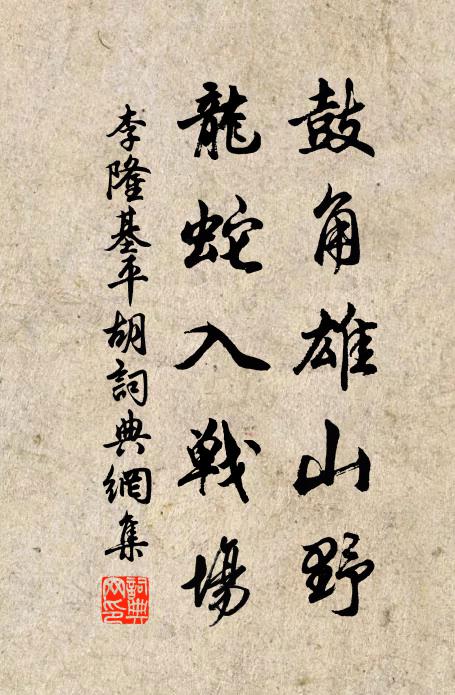 鼓角雄山野
龍蛇入戰場
李隆基平胡詞典網集
詞典
网印